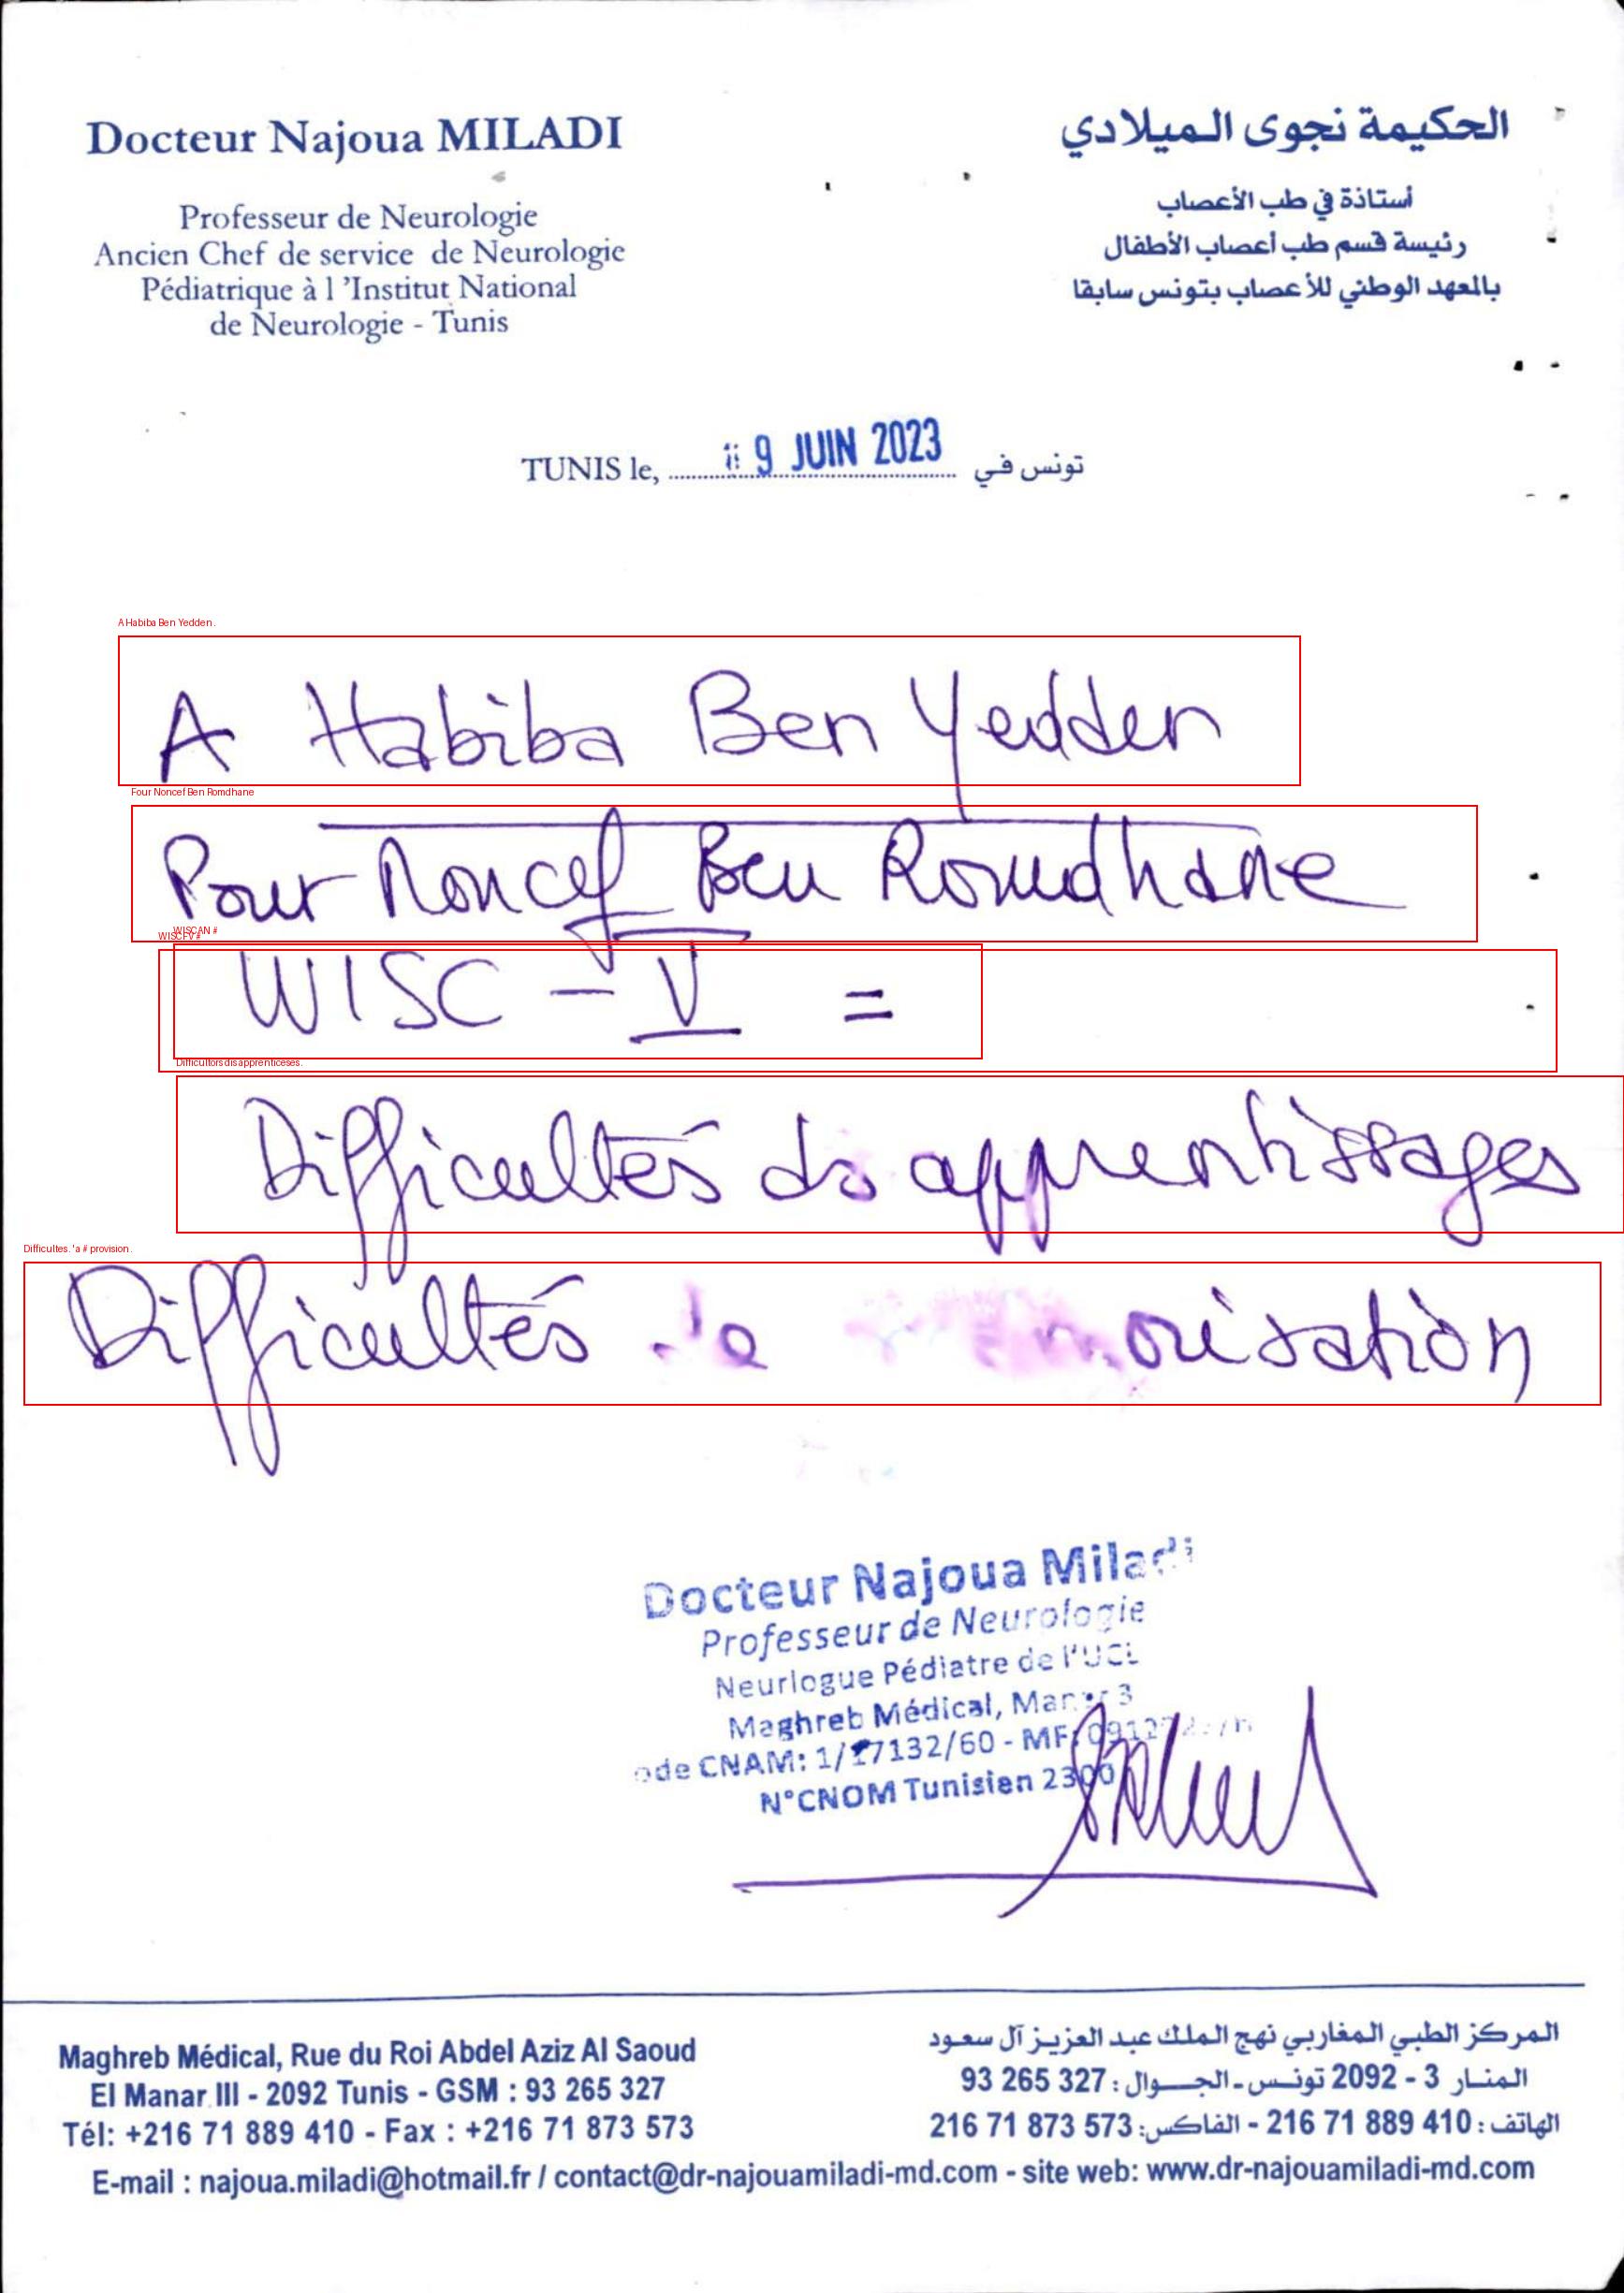 Docteur Najoua MILADI
Professeur de Neurologie
Ancien Chef de service de Neurologie
Pédiatrique à l 'Institut National
de Neurologie - Tunis
الحكيمة نجوى الميلادي
أستاذة في طب الأعصاب
رئيسة قسم طب أعصاب الأطفال
بالمعهد الوطني للأعصاب بتونس سابقا
TUNIS le, 9 JUIN 2023 تونس في
A Habiba Ben Yedden .
A Habiba Ben Yedden
Four Noncef Ben Romdhane
Pour Moncef Ben Romdhane
WISCAN #
WISC - V =
Difficultors dis apprenticeses .
Difficultés ds apprentissages
Difficultes. 'a # provision .
Difficultés
Docteur Najoua Miladi
Professeur de Neurologie
Neurlogue Pédiatre de l'UCL
Maghreb Médical, Manar 3
ode CNAM: 1/17132/60 - MF:
N°CNOM Tunisien 2300
Maghreb Médical, Rue du Roi Abdel Aziz Al Saoud
El Manar III - 2092 Tunis - GSM : 93 265 327
Tél: +216 71 889 410 - Fax : +216 71 873 573
المركز الطبي المغاربي نهج الملك عبد العزيز آل سعود
المنار 3 - 2092 تونس - الجوال : 327 265 93
الهاتف : 410 889 71 216 - الفاكس: 573 873 71 216
E-mail : najoua.miladi@hotmail.fr / contact@dr-najouamiladi-md.com - site web: www.dr-najouamiladi-md.com